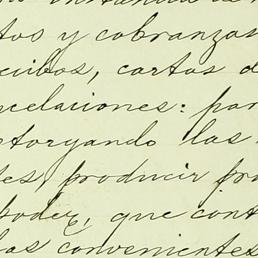 tos y cobranzas
cibos, cartas d
ncelaciones: par
otorgando las
tes, producir pr
poder, que cont
las convenientes